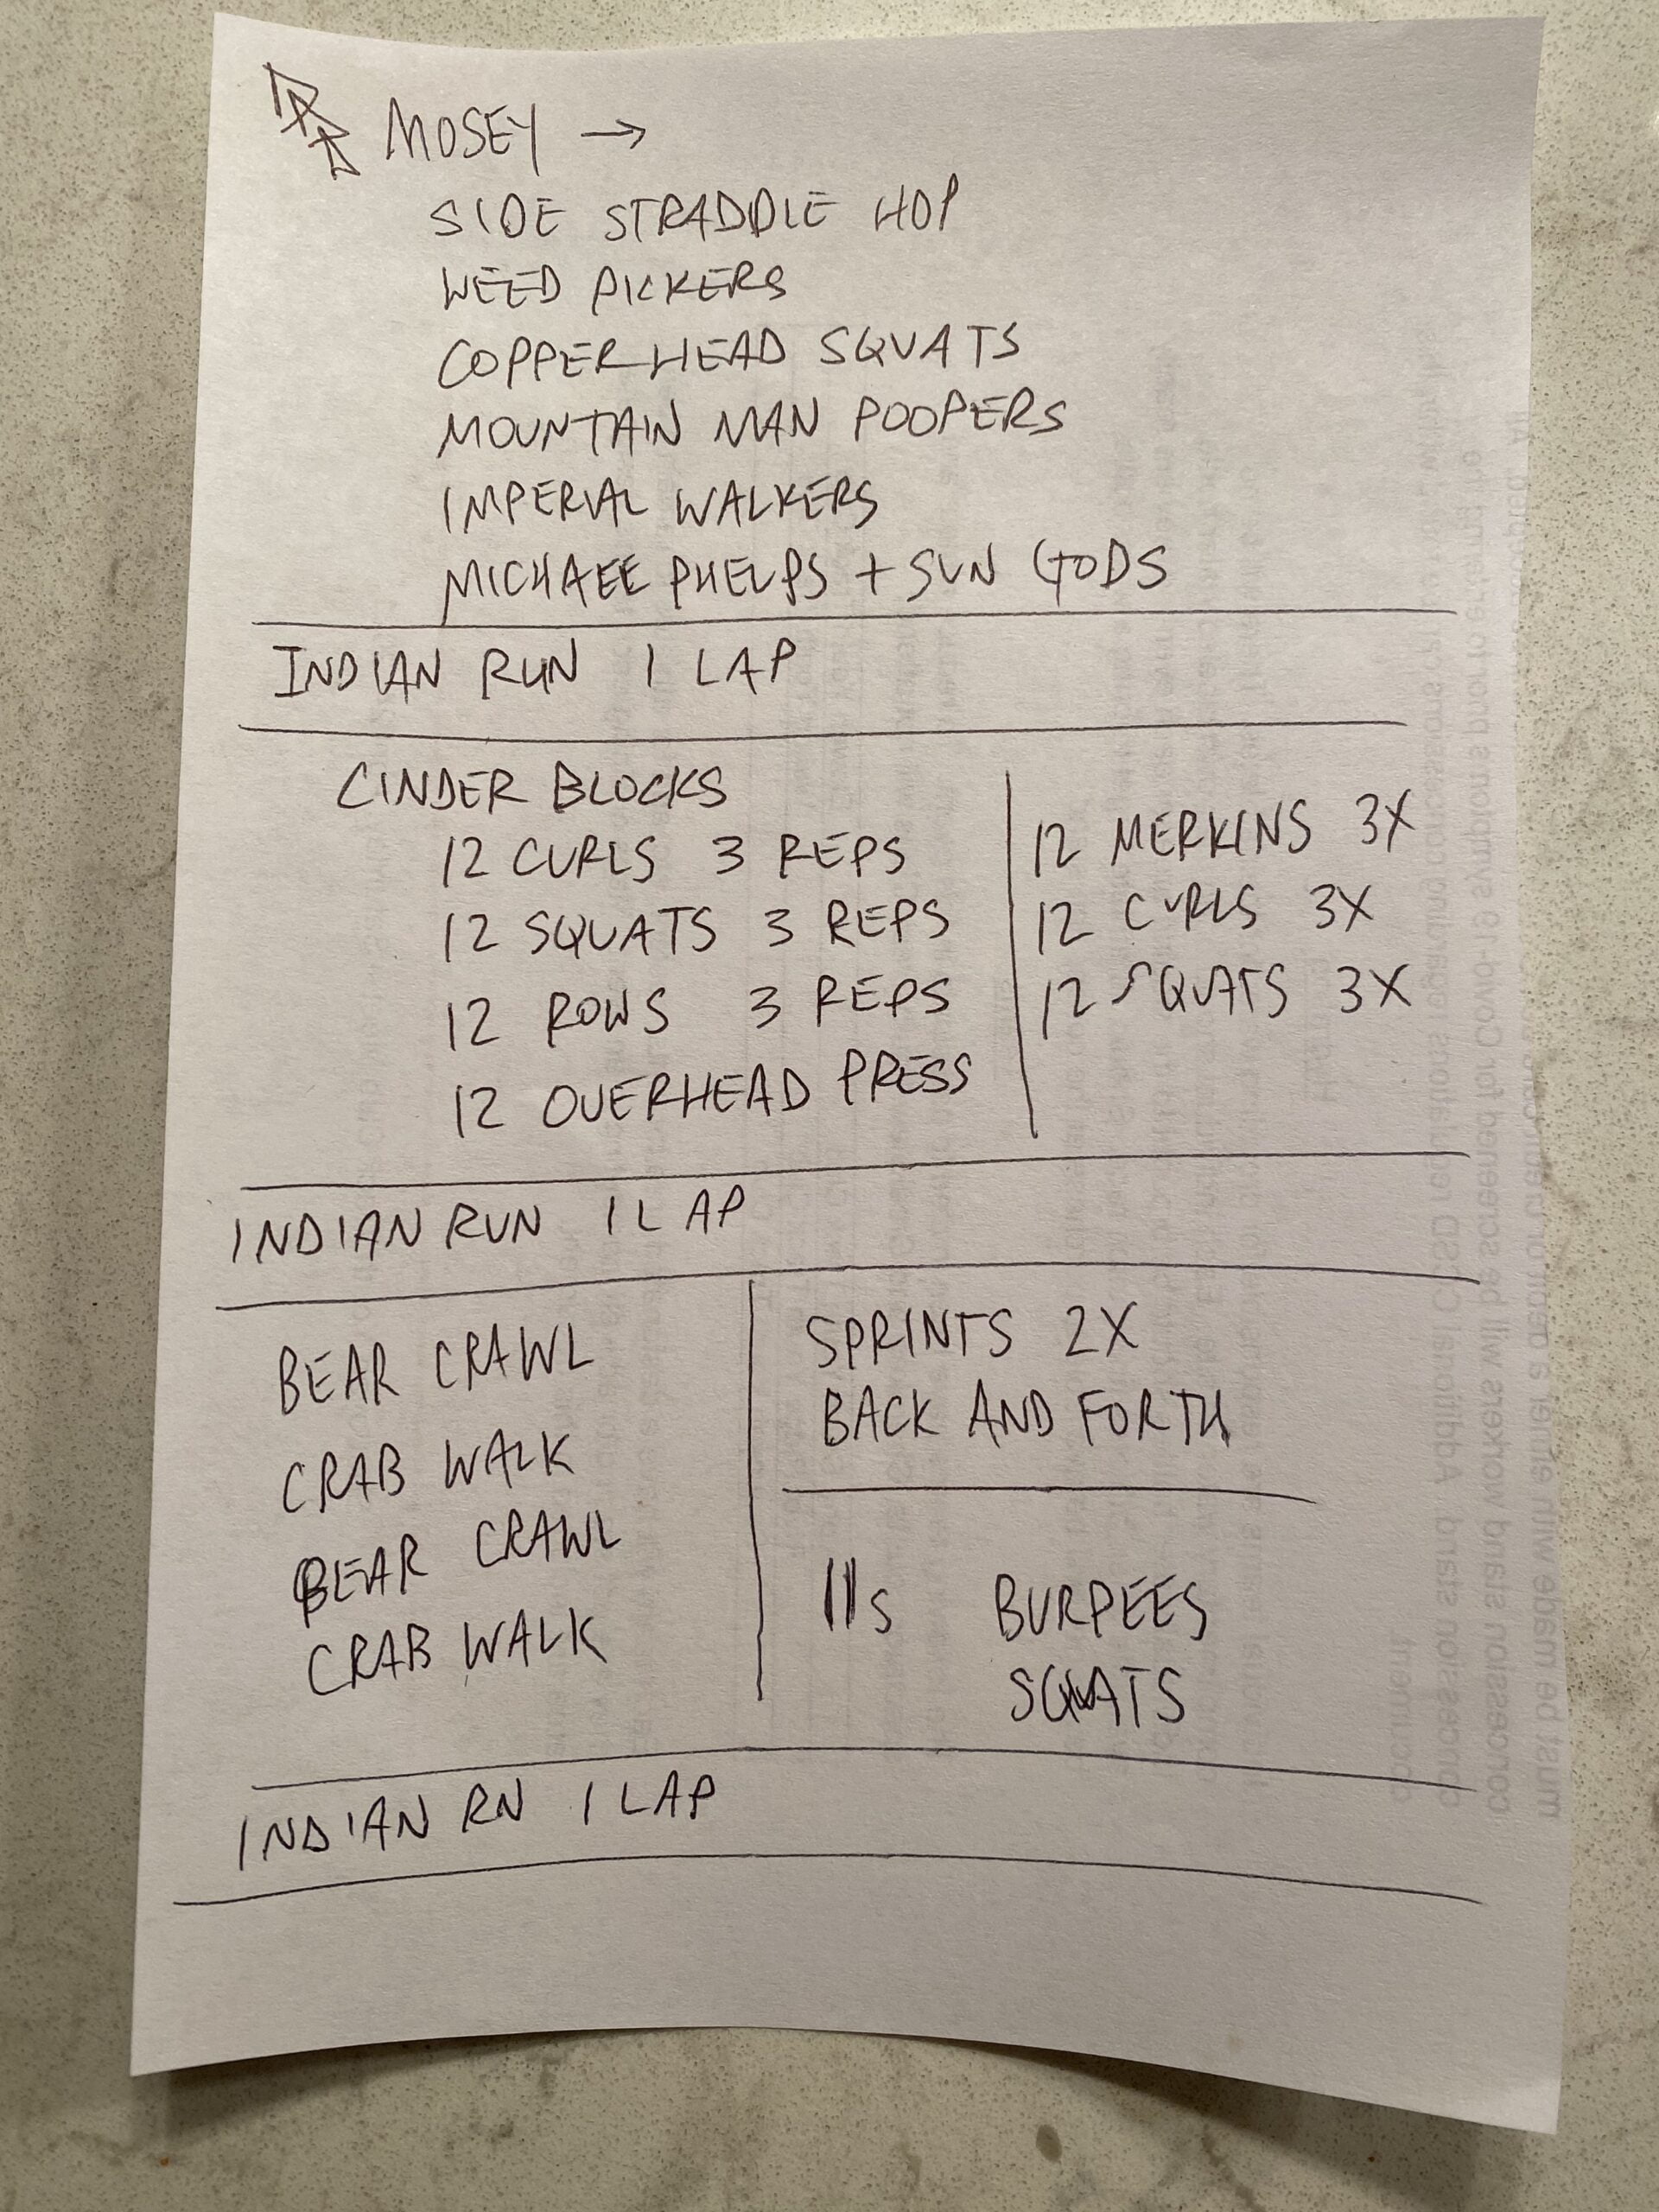 MOSEY →
SIDE STRADDLE HOP
WEED PICKERS
COPPERHEAD SQUATS
MOUNTAIN MAN POOPERS
IMPERIAL WALKERS
MICHAEL PHELPS + SUN GODS
INDIAN RUN 1 LAP
CINDER BLOCKS
12 CURLS 3 REPS
12 SQUATS 3 REPS
12 ROWS 3 REPS
12 OVERHEAD PRESS
12 MERKINS 3X
12 CURLS 3X
12 SQUATS 3X
INDIAN RUN 1 LAP
BEAR CRAWL
CRAB WALK
BEAR CRAWL
CRAB WALK
SPRINTS 2X
BACK AND FORTH
11s BURPEES
SQUATS
INDIAN RN 1 LAP